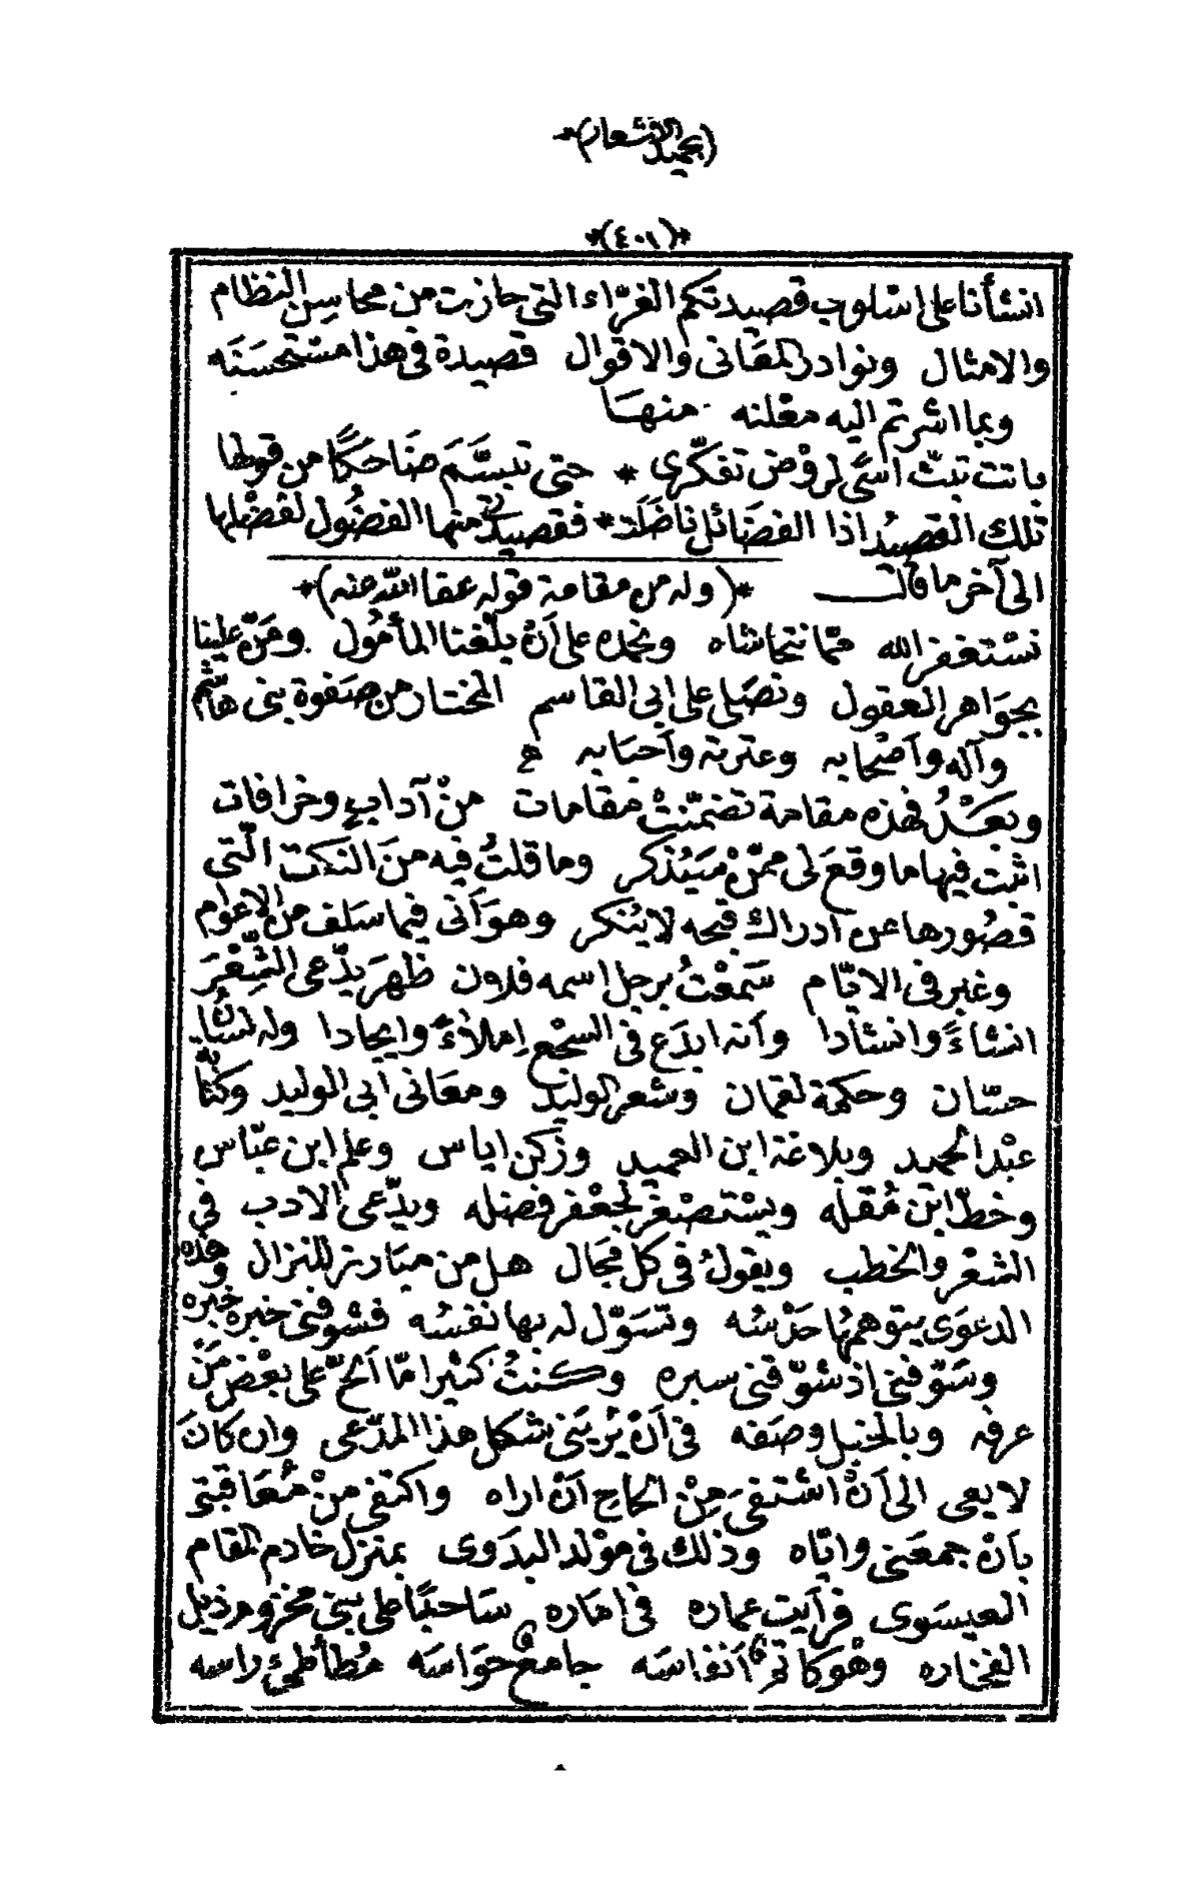 (بحميد الاشعار)*
*(٤٠١)*
انشأنا على اسْلوب قصيدتكم الغرّاء التى حازت من محاسِن النظام
والامثال ونوادر المَعَانى والاقوال قصيدة فى هذا مسْتحسَنَه
وبما اشرتم اليه معْلنه منهَا
باتت تبثّ اسًى لروْض تفكّرى * حتى تبسَّمَ ضَاحكًا من قولها
تلك القصيْد اذا الفضَائل ناضَلَت * فقصيْدتى منها الفضُول لفضْلها
الى آخر ما قالت *(وله من مقامة قوله عفا الله عنه)*
نسْتغفر الله ممّا نتحاشاه ونحمده على اَنْ بلّغنا المأمُول ومَنّ علينا
بجوَاهر العقول ونصَلى على ابى القاسم المختار من صَفوة بنى هاشم
وآله وآصْحابه وعترته وآحبَابه
وبعَدُ فهذه مقامة تضمّنتْ مقامات منْ آداب وخرافات
اثبت فيها ما وقعَ لى ممّنْ سَيُذكر وما قلتُ فيه منَ النكت الّتى
قصُورها عن ادراك قبحه لايُنكر وهوَ آنى فيما سَلف من الاعوام
وغبر فى الايّام سَمعْتُ برجل اسمه فلان ظهرَ يدّعى الشِّعْرَ
انشاءً وانشادا وآنه ابدَع فى السجْع اِملاءً وايجادا وله لسَان
حسّان وحكمة لقمان وشعر الوليد ومعَانى ابى الوليد وكتاب
عبْد الحميد وبلاغة ابن العميد وزكن اياس وعلم ابن عبّاس
وخطّ ابْن مُقله ويسْتصْغر لجعْفر فضله ويدّعى الادب فى
الشعْر والخطب ويقولُ فى كل مجَال هل من مبَارز للنزال وهذه
الدعوَى يتوهمهَا حدْسُه وتسَوّل له بها نفسُه فشوّقنى خبره خبره
وسَوّفنى اذ شوّقنى سبره وكنتُ كثيرا مّا اَلحّ على بعْض مَنْ
عرفه وبالخبل وصَفه فى اَنْ يُريَنى شكل هذا المدّعى وان كانَ
لا يعى الى اَنْ اشتفىَ مِنْ الحاح اَنْ اراه واكتفى منْ مُعَاقبتى
بآنْ جمعَنى وايّاه وذلك فى موْلد البدَوى بمنزل خادم المقام
العيسَوى فرآيت عماره فى اماره سَاحبًا على بنى مخزوم ذيل
الفخاره وهْوَ كاتم آنفاسَه جامعٌ حوَاسَه مُطأطئ راسه